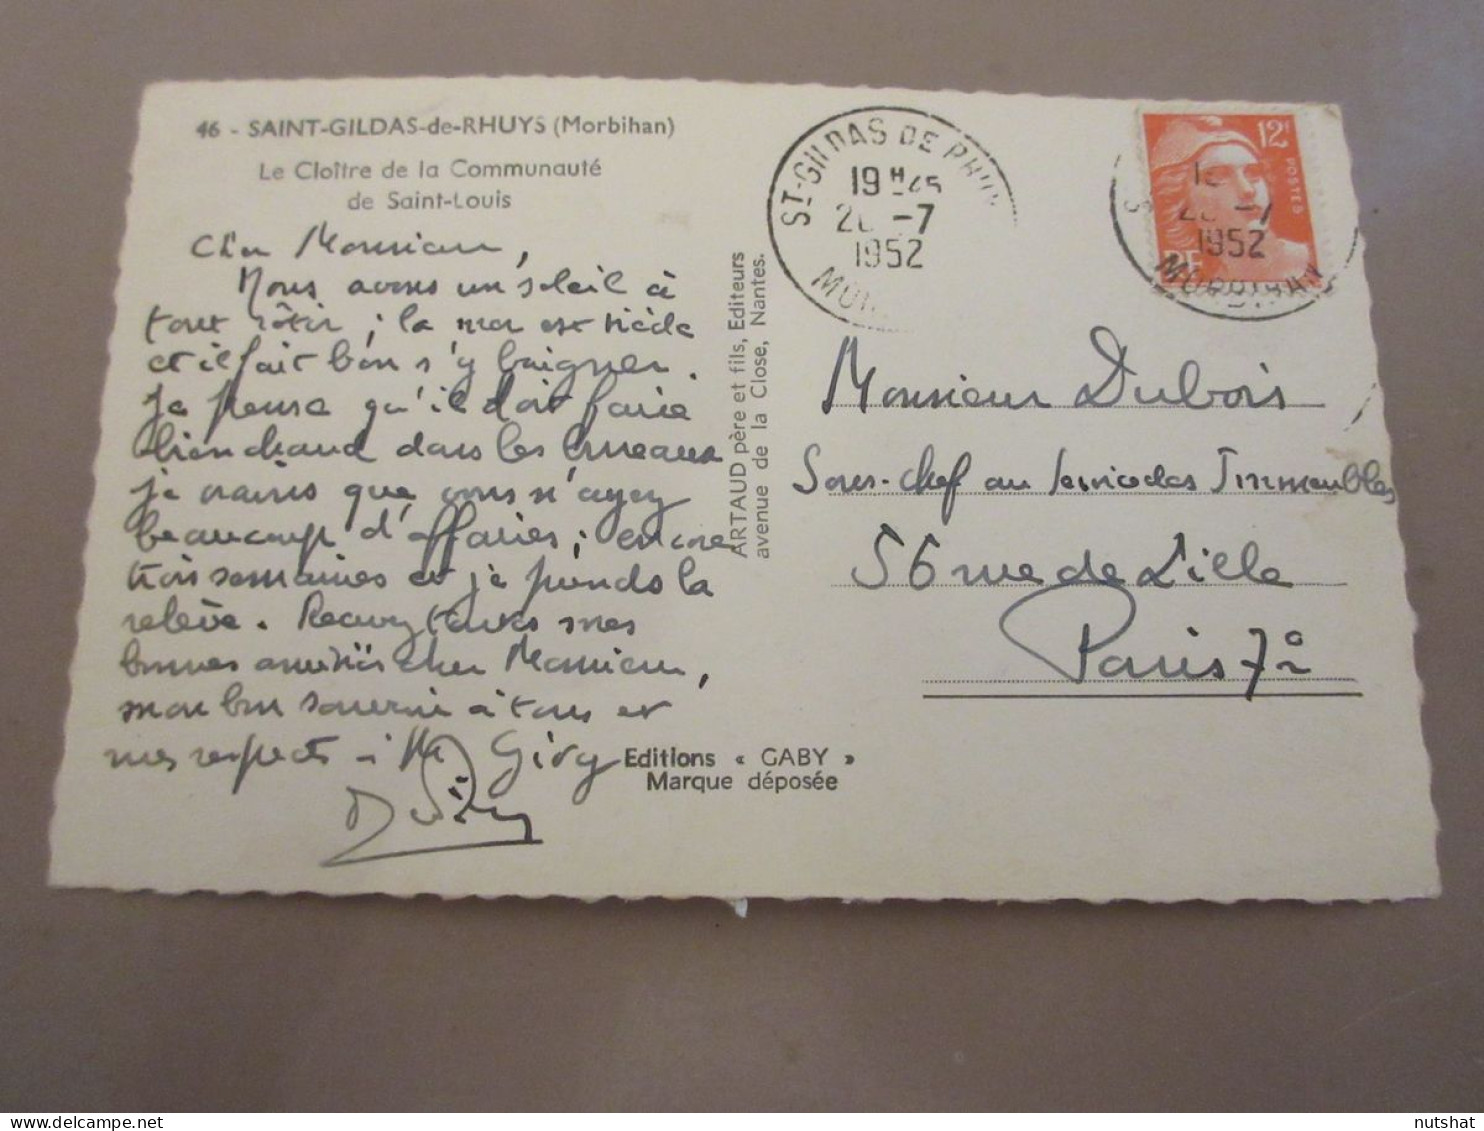 46 - SAINT-GILDAS-de-RHUYS (Morbihan)
Le Cloître de la Communauté
de Saint-Louis
Cher Monsieur,
Nous avons un soleil à
tout rôtir ; la mer est tiède
et il fait bon s'y baigner.
Je pense qu'il doit faire
bien chaud dans les bureaux
je crains que vous n'ayez
beaucoup d'affaires ; encore
trois semaines et je prends la
relève. Recevez toutes mes
bonnes amitiés cher Monsieur,
mon bon souvenir à tous et
mes respects à Mr Givry
ARTAUD père et fils, Editeurs
avenue de la Close, Nantes.
Editions « GABY »
Marque déposée
ST-GILDAS DE RHUYS
19H45
-7
1952
12F
POSTES
RF
-7
1952
MORBIHAN
Monsieur Dubois
Sous-chef au service des Immeubles
56 rue de Lille
Paris 7e
nutshat